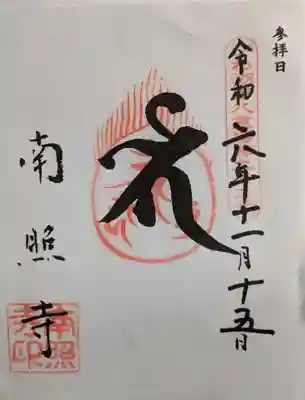 参拝日
令和六年十一月十五日
南照寺